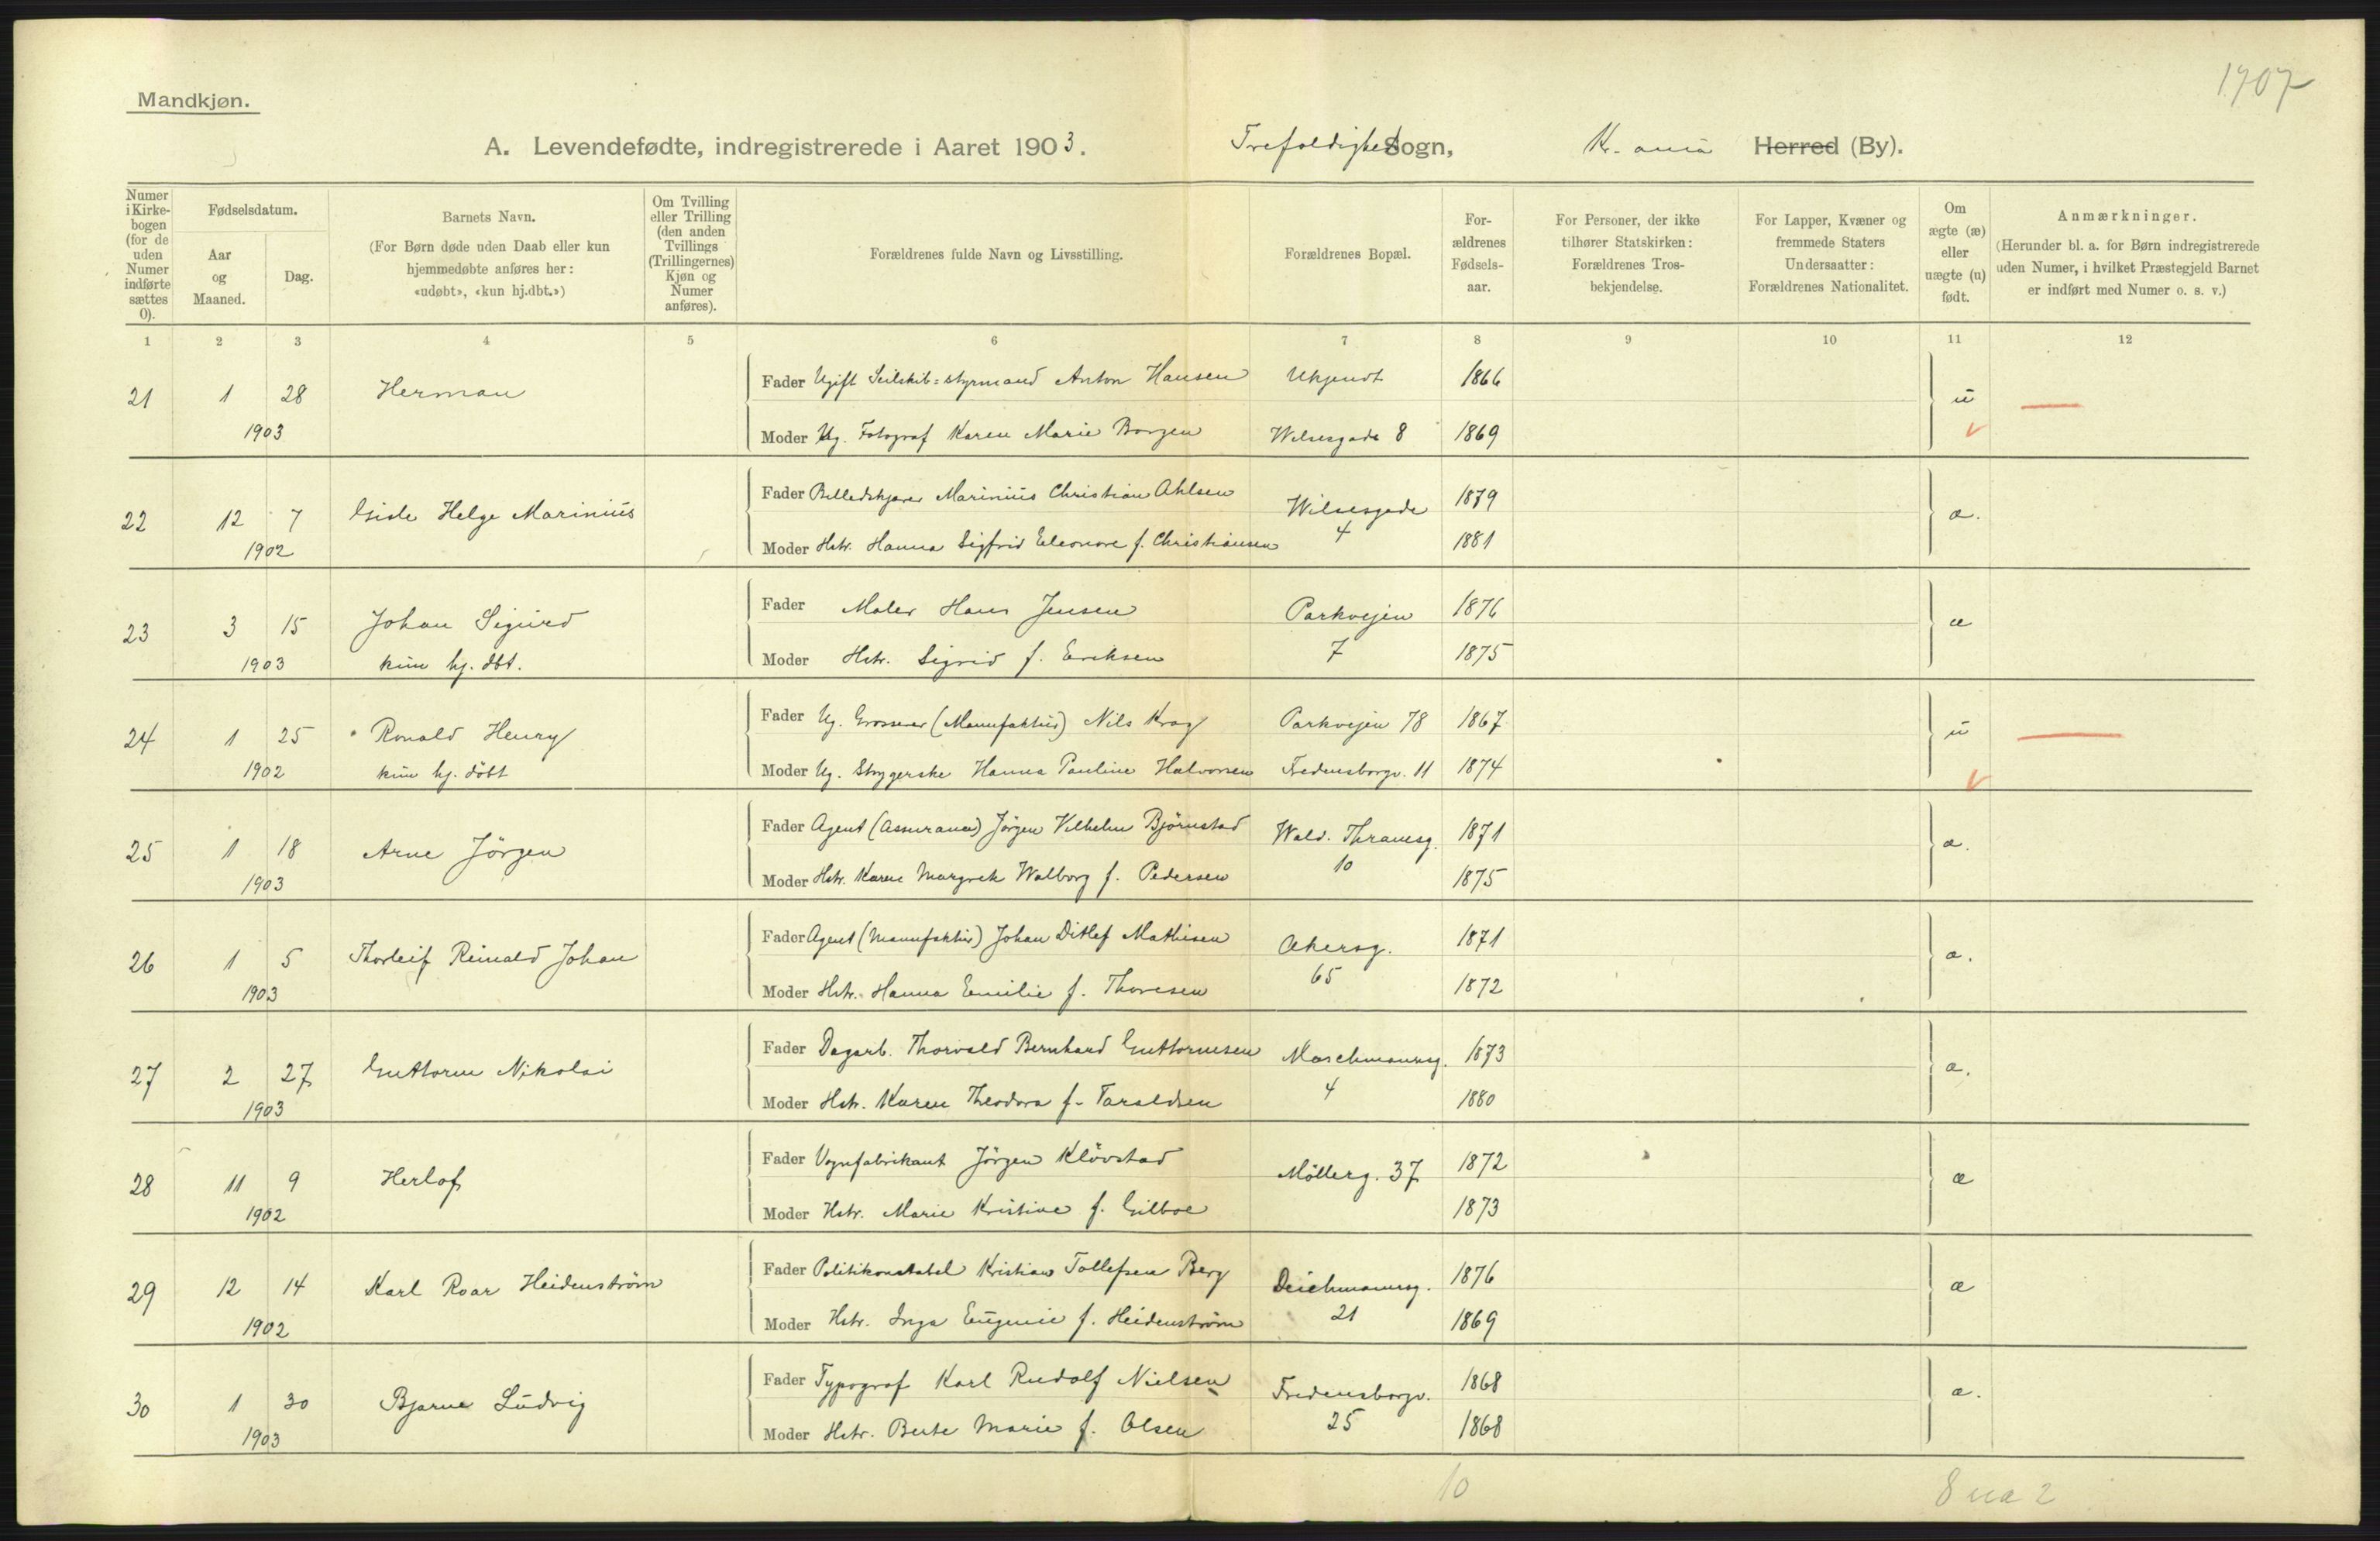 1707
Mandkjøn.
A. Levendefødte, indregistrerede i Aaret 1903. Trefoldighed Sogn, Kr. ania Herred (By).
Numer i Kirkebogen (for de uden Numer indførte sættes 0).
Fødselsdatum.
Aar og Maaned.
Dag.
Barnets Navn.
(For Børn døde uden Daab eller kun hjemmedøbte anføres her: «udøbt», «kun hj.dbt.»)
Om Tvilling eller Trilling (den anden Tvillings (Trillingernes) Kjøn og Numer anføres).
Forældrenes fulde Navn og Livsstilling.
Forældrenes Bopæl.
Forældrenes Fødselsaar.
For Personer, der ikke tilhører Statskirken: Forældrenes Trosbekjendelse.
For Lapper, Kvæner og fremmede Staters Undersaatter: Forældrenes Nationalitet.
Om ægte (æ) eller uægte (u) født.
Anmærkninger.
(Herunder bl. a. for Børn indregistrerede uden Numer, i hvilket Præstegjeld Barnet er indført med Numer o. s. v.)
1 2 3 4 5 6 7 8 9 10 11 12
21 1 28 Herman Fader Ugift Seilskib-styrmand Anton Hansen Ukjendt 1866 u
1903 Moder Ug. Fotograf Karen Marie Borgen Wilsesgade 8 1869
22 12 7 Gisle Helge Marinius Fader Billedskjærer Marinius Christian Ohlsen Wilsesgade 1879 æ.
1902 Moder Hstr. Hanna Sigfrid Eleonore f. Christiansen 4 1881
23 3 15 Johan Sigurd Fader Maler Hans Jensen Parkvejen 1876 æ
1903 kun hj. dbt. Moder Hstr. Sigrid f. Eriksen 7 1875
24 1 25 Ronald Henry Fader Ug. Grosserer (Manufaktur) Nils Krag Parkvejen 78 1867 u
1902 kun hj. döbt Moder Ug. Strygerske Hanna Pauline Halvorsen Fredensborgv. 11 1874
25 1 18 Arne Jörgen Fader Agent (Assurance) Jörgen Vilhelm Björnstad Wald. Thranesg. 1871 æ.
1903 Moder Hstr. Karen Margrete Walborg f. Pedersen 10 1875
26 1 5 Thorleif Reinald Johan Fader Agent (Manufaktur) Johan Ditlef Mathisen Akersg. 1871 æ.
1903 Moder Hstr. Hanna Emilie f. Thoresen 65 1872
27 2 27 Guttorm Nikolai Fader Dagarb. Thorvald Bernhard Guttormsen Maschmannsg. 1873 æ.
1903 Moder Hstr. Karen Theodora f. Taraldsen 4 1880
28 11 9 Herlof Fader Vognfabrikant Jörgen Klövstad Möllerg. 37 1872 æ
1902 Moder Hstr. Marie Kristine f. Gilboe 1873
29 12 14 Karl Roar Heidenström Fader Politikonstabel Kristian Tollefsen Berg Deichmannsg. 1876 æ
1902 Moder Hstr. Inga Eugenie f. Heidenström 21 1869
30 1 30 Bjarne Ludvig Fader Typograf Karl Rudolf Nielsen Fredensborgv. 1868 æ.
1903 Moder Hstr. Berte Marie f. Olsen 25 1868
10 8 uæ 2